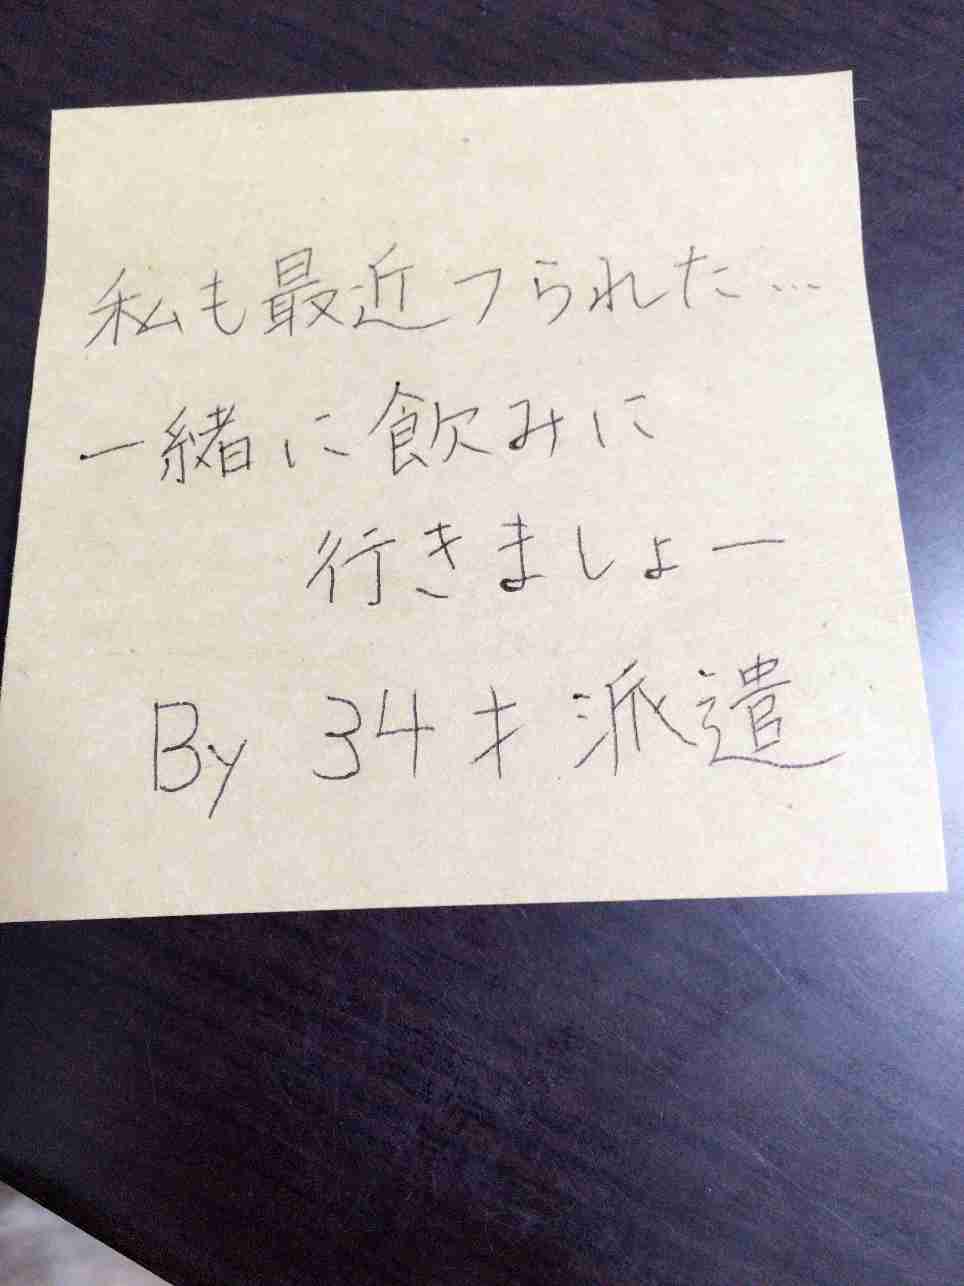 私も最近フられた…
一緒に飲みに
行きましょー
By 34才派遣